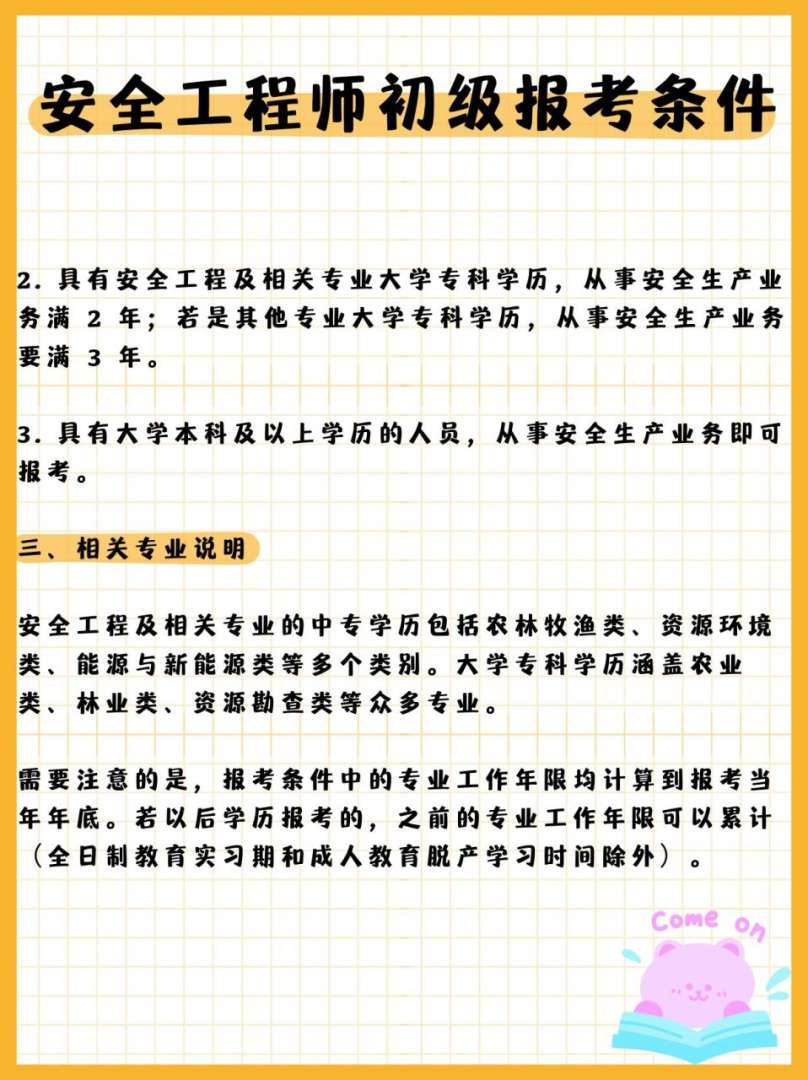 安全工程师初级报考条件
2. 具有安全工程及相关专业大学专科学历，从事安全生产业
务满 2 年；若是其他专业大学专科学历，从事安全生产业务
要满 3 年。
3. 具有大学本科及以上学历的人员，从事安全生产业务即可
报考。
三、相关专业说明
安全工程及相关专业的中专学历包括农林牧渔类、资源环境
类、能源与新能源类等多个类别。大学专科学历涵盖农业
类、林业类、资源勘查类等众多专业。
需要注意的是，报考条件中的专业工作年限均计算到报考当
年年底。若以后学历报考的，之前的专业工作年限可以累计
（全日制教育实习期和成人教育脱产学习时间除外）。
Come on